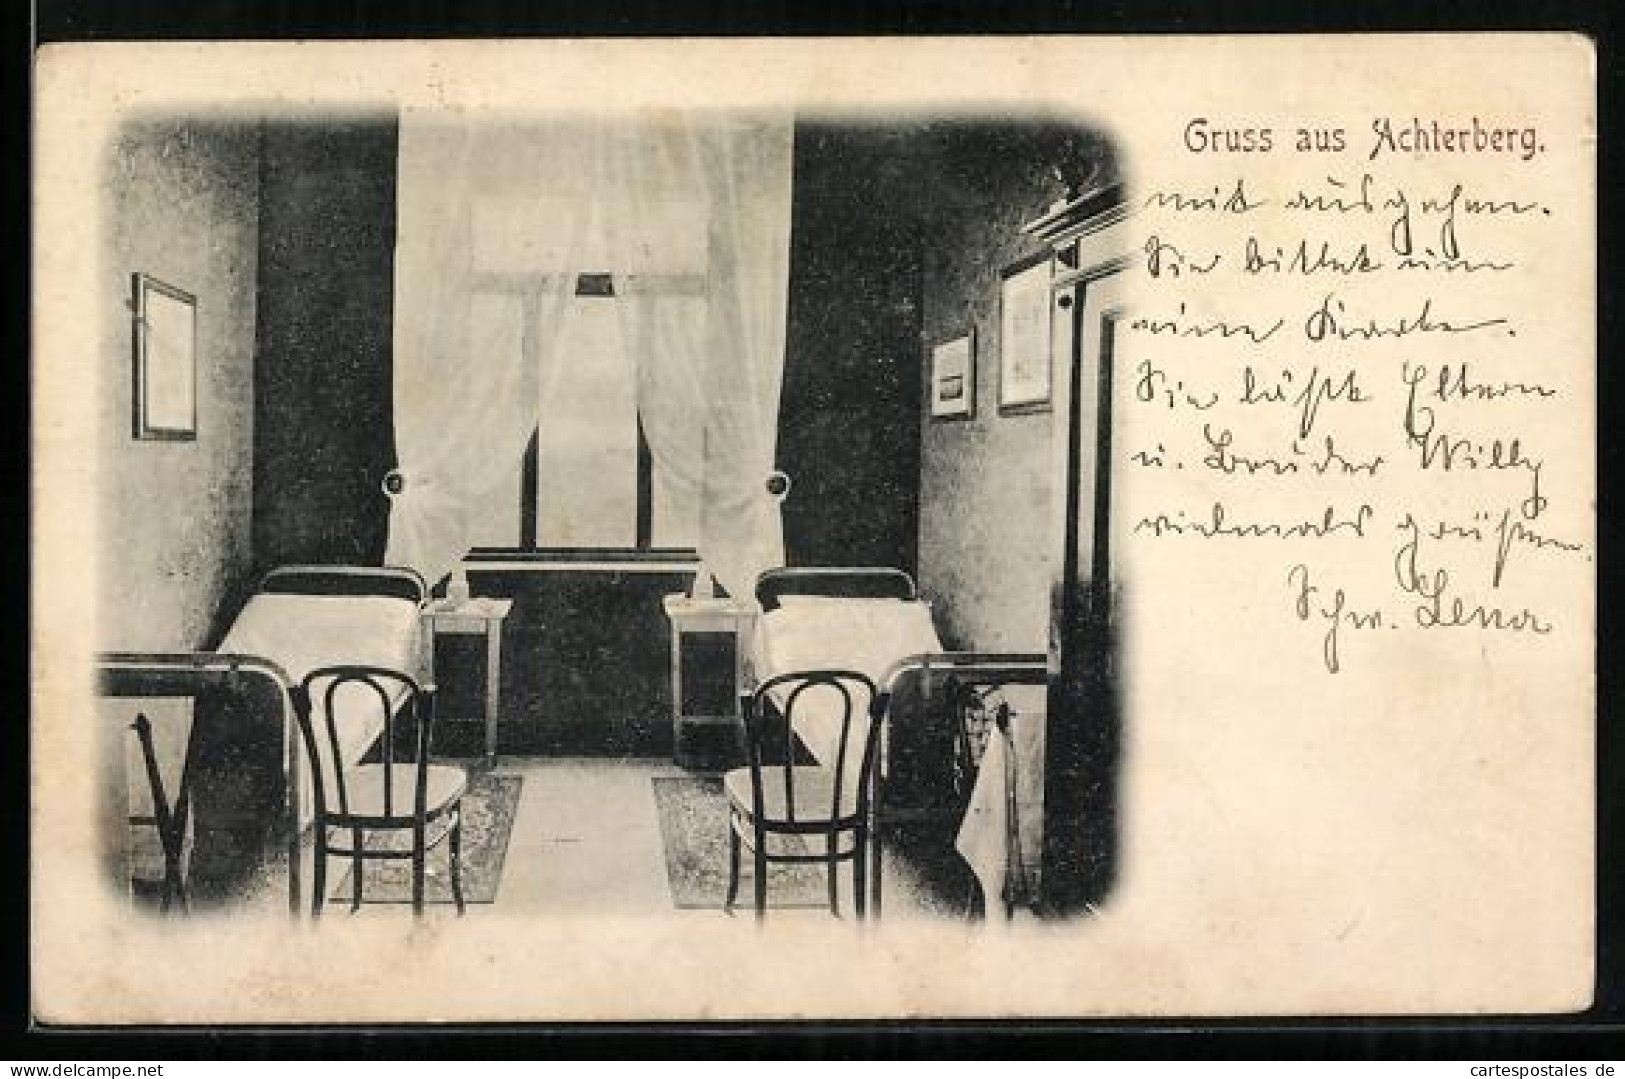 Gruss aus Achterberg.
mit ausgehen.
Sie bittet um
eine Karte.
Sie läßt Eltern
u. Bruder Willy
vielmals grüßen.
Schw. Lena
www.cartespostales de